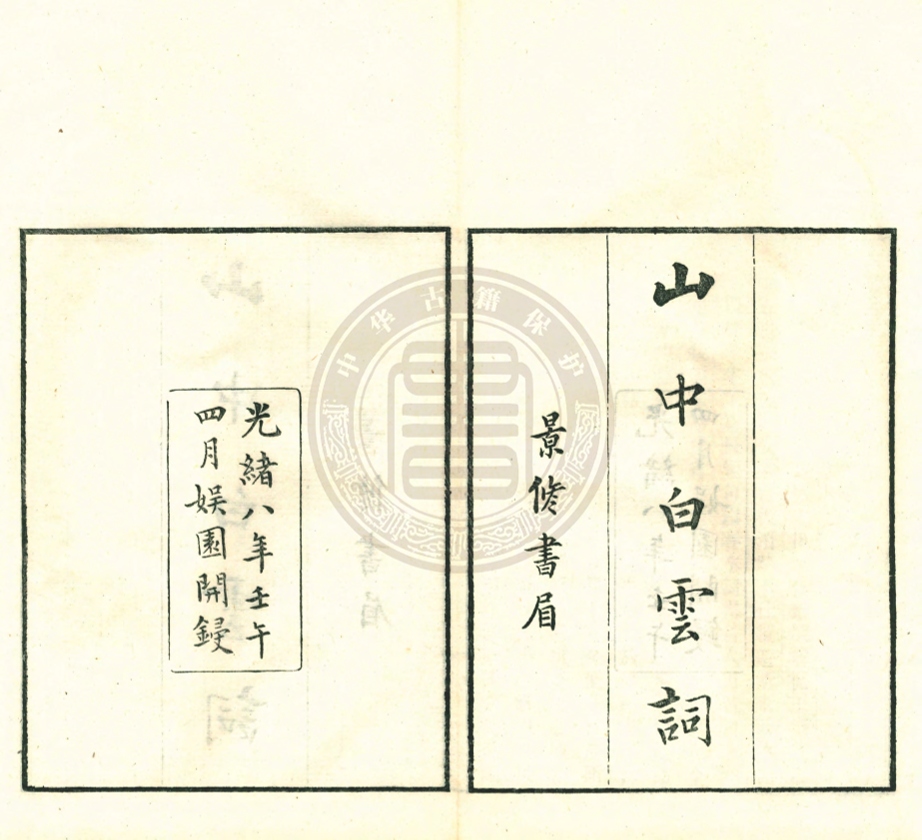 山中白雲詞
景偹書眉
光緒八年壬午
四月娱園開鋟
中华古籍保护